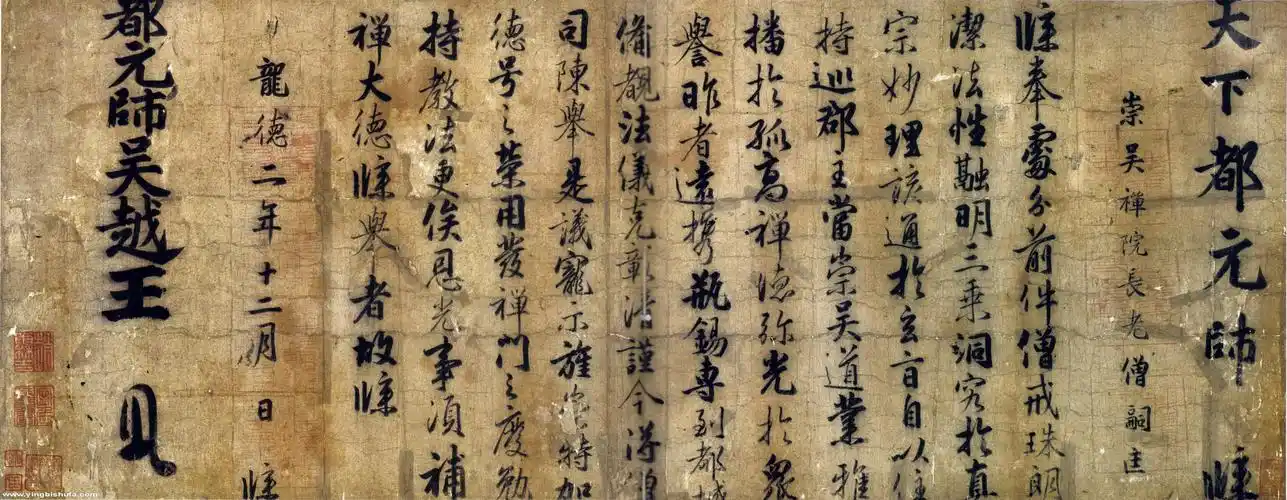 天下都元帥 牒
崇吳禪院長老僧嗣匡
牒奉處分前件僧戒珠朗
潔法性融明三乘洞究於真
宗妙理該通於玄言自以住
持巡郡主當崇吳道業雅
播於孤高禪德弥光於衆
譽昨者遠携瓶錫專到都城
備觀法儀克彰精謹今得僧
司陳舉是議寵示旌宜特加
德号之榮用發禪門之慶勉
持教法更俟恩光事須補
禪大德牒舉者故牒
龍德二年十二月 日 牒
都元帥吳越王
www.yingbishufa.com